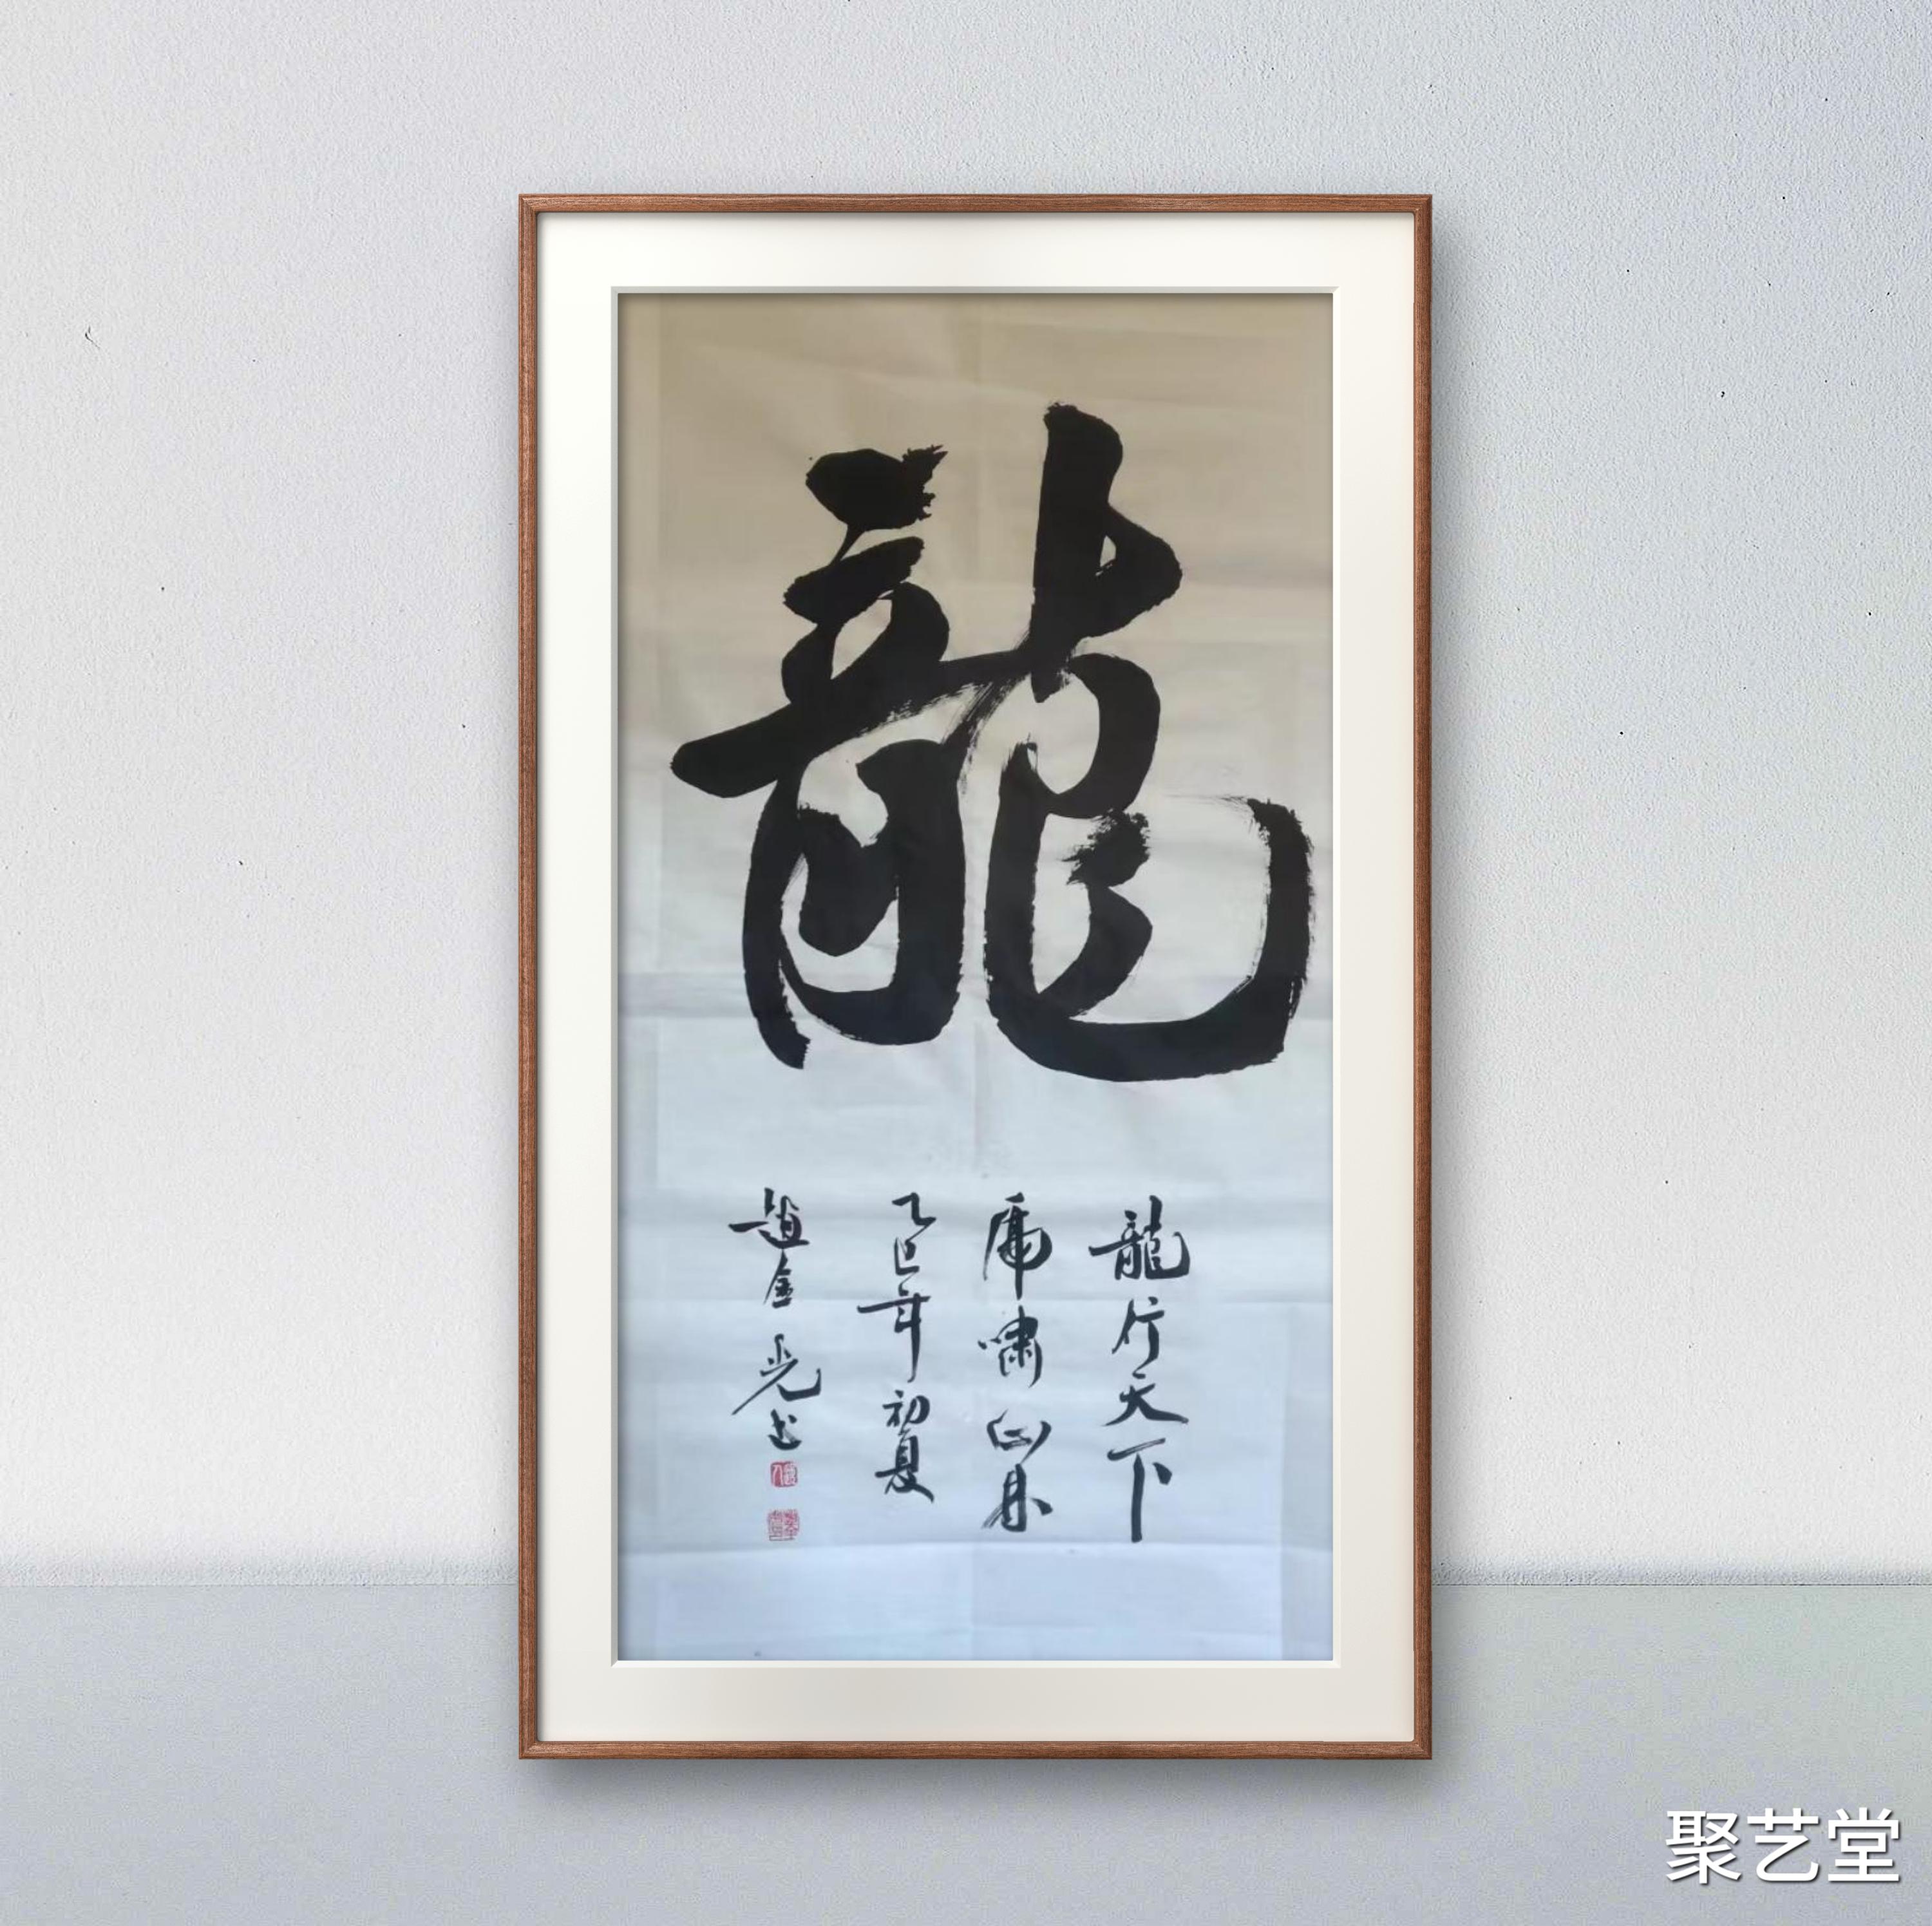 龍
龍行天下
虎嘯山林
乙巳年初夏
趙金光书
聚艺堂